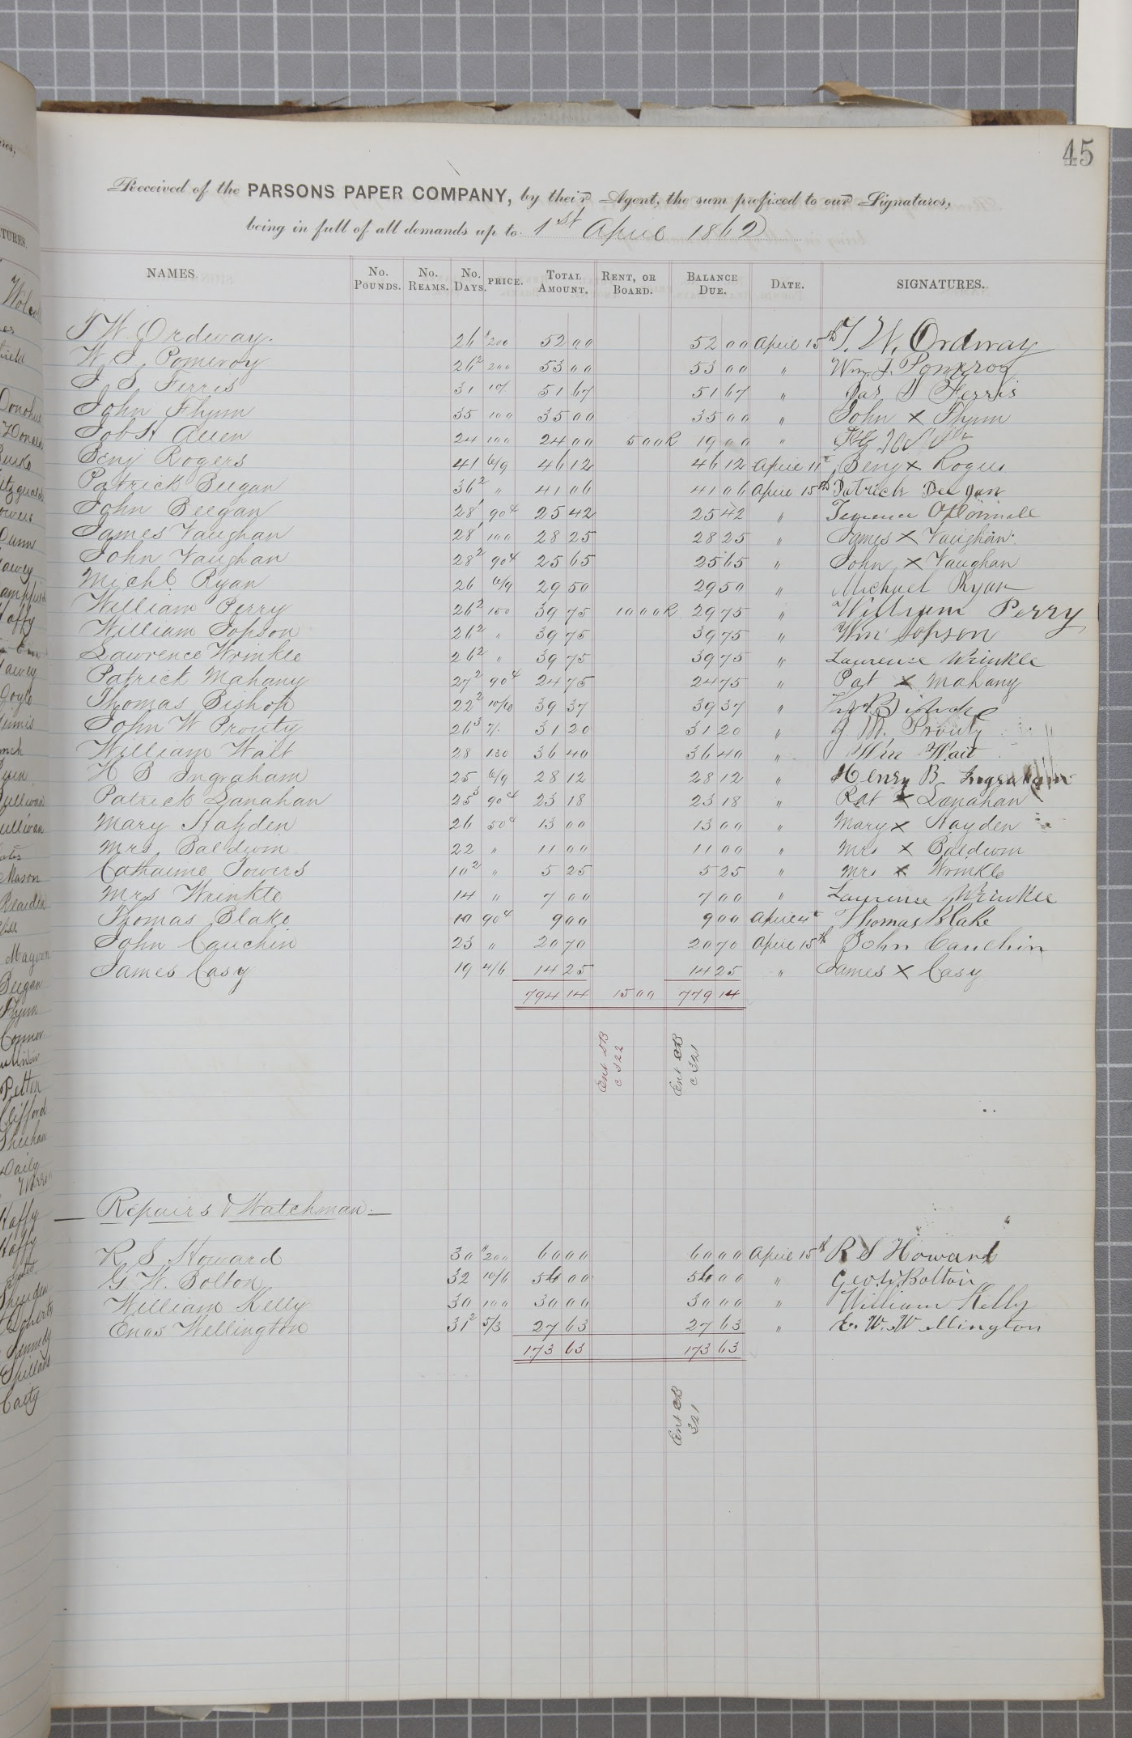 45
Received of the PARSONS PAPER COMPANY, by their Agent, the sum prefixed to our Signatures,
being in full of all demands up to 1st April 1862
NAMES No. Pounds. No. Reams. No. Days. PRICE. Total Amount. Rent, or Board. Balance Due. Date. SIGNATURES.
T W Ordway. 26 200 52 00 52 00 April 15th T. W. Ordway
W. J. Pomeroy 26 2 200 53 00 53 00 " Wm. J. Pomeroy
J. S. Ferris 31 10/ 51 67 51 67 " Jas S Ferris
John Flynn 35 100 35 00 35 00 " John X Flynn
Job H Allen 24 100 24 00 5 00 R 19 00 "
Benj Rogers 41 6/9 46 12 46 12 April 11th Benj X Rogers
Patrick Beegan 36 2 " 41 06 41 06 April 15th Patrick Beegan
John Beegan 28 1 90c 25 42 25 42 "
James Vaughan 28 1 100 28 25 28 25 " James X Vaughan.
John Vaughan 28 2 90c 25 65 25 65 " John X Vaughan
Michl Ryan 26 6/9 29 50 29 50 " Michael Ryan
William Perry 26 2 150 39 75 10 00 R 29 75 " William Perry
William Jopson 26 2 " 39 75 39 75 " Wm Jopson
Lawrence Wrinkle 26 2 " 39 75 39 75 " Lawrence Wrinkle
Patrick Mahany 27 2 90c 24 75 24 75 " Pat X Mahany
Thomas Bishop 22 2 10/6 39 37 39 37 "
John W Prouty 26 3 7/ 31 20 31 20 " J W. Prouty
William Wait 28 130 36 40 36 40 " Wm Wait
H B Ingraham 25 6/9 28 12 28 12 " Henry B Ingraham
Patrick Lanahan 25 3 90c 23 18 23 18 " Pat X Lanahan
Mary Hayden 26 50c 13 00 13 00 " Mary X Hayden
Mrs. Baldwin 22 " 11 00 11 00 " Mrs X Baldwin
Catharine Towers 10 2 " 5 25 5 25 " Mrs X Wrinkle
Mrs Wrinkle 14 " 7 00 7 00 " Lawrence Wrinkle
Thomas Blake 10 90c 9 00 9 00 April Thomas Blake
John Cauchin 23 " 20 70 20 70 April 15th John Cauchin
James Casy 19 4/6 14 25 14 25 " James X Casy
794 14 15 00 779 14
Ent
C 322
Ent CB
C 321
Repairs & Watchman
R S Howard 30 200 60 00 60 00 April 15th R S Howard
G. W. Bolton 32 10/6 54 00 54 00 " Geo W Bolton
William Kelly 30 100 30 00 30 00 " William Kelly
Enos Wellington 31 2 5/3 27 63 27 63 " E. W. Wellington
173 63 173 63
Ent CB
321